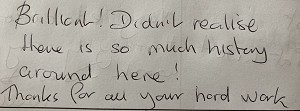 Brilliant! Didn't realise
there is so much history
around here!
Thanks for all your hard work